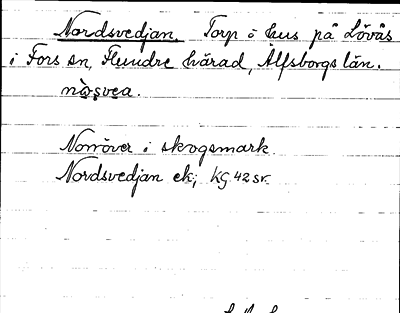 Nordsvedjan. Torp o hus på Lövås
i Fors sn, Flundre härad, Älfsborgs län.
Norröver i skogsmark.
Nordsvedjan ek; KG 42 sr.